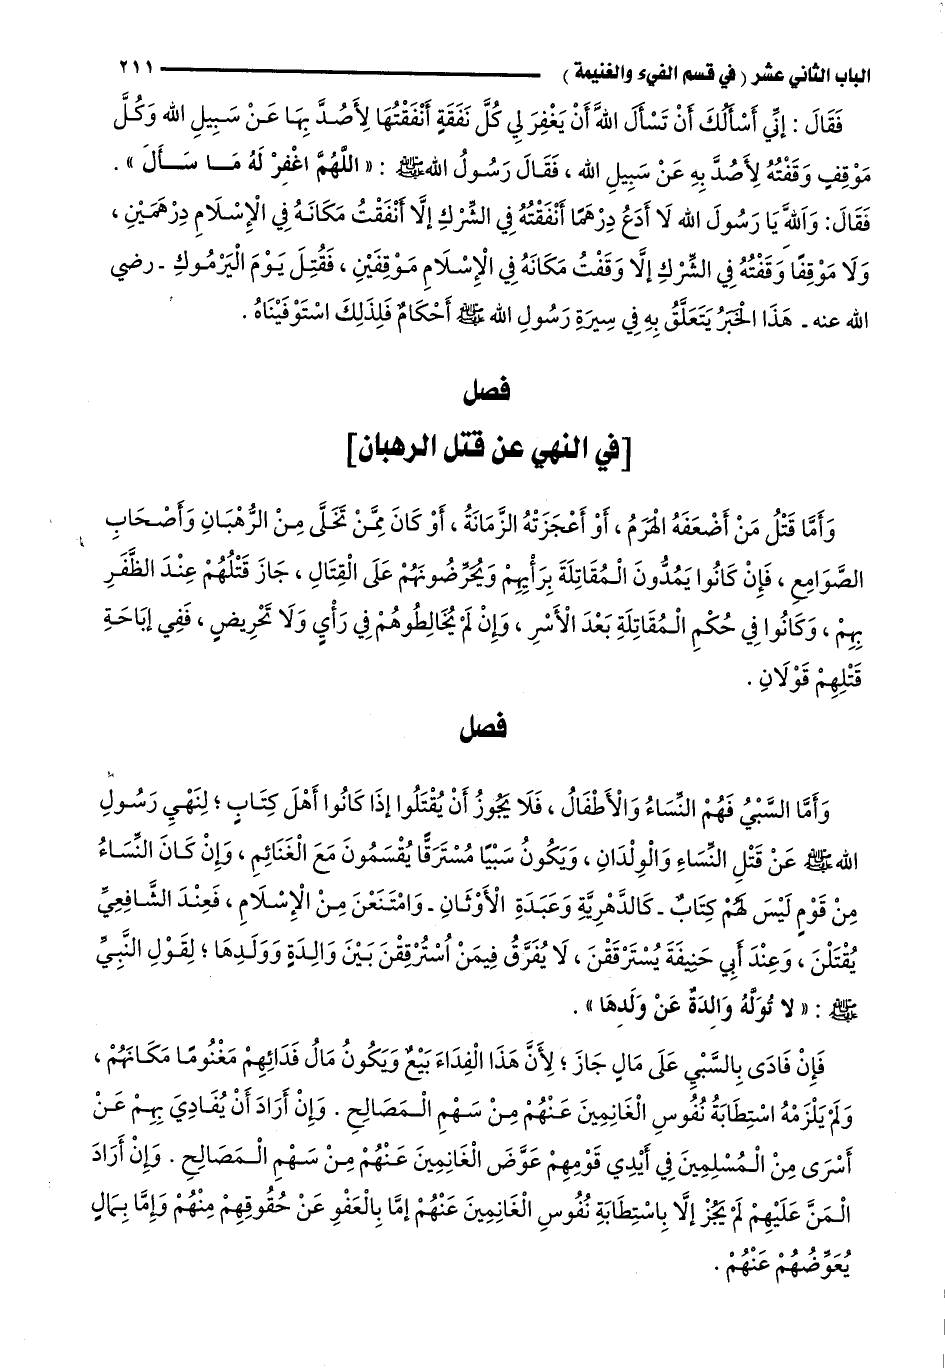 الباب الثاني عشر ( في قسم الفيء والغنيمة ) ٢١١
فَقَالَ : إِنِّي أَسْأَلُكَ أَنْ تَسْأَلَ اللهَ أَنْ يَغْفِرَ لِي كُلَّ نَفَقَةٍ أَنْفَقْتُهَا لِأَصُدَّ بِهَا عَنْ سَبِيلِ الله وَكُلَّ
مَوْقِفٍ وَقَفْتُهُ لِأَصُدَّ بِهِ عَنْ سَبِيلِ الله ، فَقَالَ رَسُولُ اللهﷺ : « اللَّهُمَّ اغْفِرْ لَهُ مَا سَأَلَ » .
فَقَالَ: وَاللهِ يَا رَسُولَ الله لَا أَدَعُ دِرْهَمًا أَنْفَقْتُهُ فِي الشِّرْكِ إلَّا أَنْفَقْتُ مَكَانَهُ فِي الْإِسْلَامِ دِرْهَمَيْنِ ،
وَلَا مَوْقِفًا وَقَفْتُهُ فِي الشِّرْكِ إلَّا وَقَفْتُ مَكَانَهُ فِي الْإِسْلَامِ مَوْقِفَيْنِ ، فَقُتِلَ يَوْمَ الْيَرْمُوكِ ـ رضي
الله عنه ـ هَذَا الْخَبَرُ يَتَعَلَّقُ بِهِ فِي سِيرَةِ رَسُولِ الله ﷺ أَحْكَامٌ فَلِذَلِكَ اسْتَوْفَيْنَاهُ .
فصل
[في النهي عن قتل الرهبان]
وَأَمَّا قَتْلُ مَنْ أَضْعَفَهُ الْهَرَمُ ، أَوْ أَعْجَزَتْهُ الزَّمَانَةُ ، أَوْ كَانَ مِمَّنْ تَخَلَّى مِنْ الرُّهْبَانِ وَأَصْحَابِ
الصَّوَامِعِ ، فَإِنْ كَانُوا يَمُدُّونَ الْمُقَاتِلَةَ بِرَأْيِهِمْ وَيُحَرِّضُونَهُمْ عَلَى الْقِتَالِ ، جَازَ قَتْلُهُمْ عِنْدَ الظَّفَرِ
بِهِمْ ، وَكَانُوا فِي حُكْمِ الْمُقَاتِلَةِ بَعْدَ الْأَسْرِ ، وَإِنْ لَمْ يُخَالِطُوهُمْ فِي رَأْيٍ وَلَا تَحْرِيضٍ ، فَفِي إبَاحَةِ
قَتْلِهِمْ قَوْلَانِ .
فصل
وَأَمَّا السَّبْيُ فَهُمْ النِّسَاءُ وَالْأَطْفَالُ ، فَلَا يَجُوزُ أَنْ يُقْتَلُوا إذَا كَانُوا أَهْلَ كِتَابٍ ؛ لِنَهْيِ رَسُولِ
اللهﷺ عَنْ قَتْلِ النِّسَاءِ وَالْوِلْدَانِ ، وَيَكُونُ سَبْيًا مُسْتَرَقًّا يُقْسَمُونَ مَعَ الْغَنَائِمِ ، وَإِنْ كَانَ النِّسَاءُ
مِنْ قَوْمٍ لَيْسَ لَهُمْ كِتَابٌ ـ كَالدَّهْرِيَّةِ وَعَبَدَةِ الْأَوْثَانِ ـ وَامْتَنَعْنَ مِنْ الْإِسْلَامِ ، فَعِنْدَ الشَّافِعِيِّ
يُقْتَلْنَ ، وَعِنْدَ أَبِي حَنِيفَةَ يُسْتَرْقَقْنَ ، لَا يُفَرَّقُ فِيمَنْ اُسْتُرْقِقْنَ بَيْنَ وَالِدَةٍ وَوَلَدِهَا ؛ لِقَوْلِ النَّبِيِّ
ﷺ : « لا تُوَلَّهُ وَالِدَةٌ عَنْ وَلَدِهَا » .
فَإِنْ فَادَى بِالسَّبْيِ عَلَى مَالٍ جَازَ ؛ لِأَنَّ هَذَا الْفِدَاءَ بَيْعٌ وَيَكُونُ مَالُ فَدَائِهِمْ مَغْنُومًا مَكَانَهُمْ ،
وَلَمْ يَلْزَمْهُ اسْتِطَابَةُ نُفُوسِ الْغَانِمِينَ عَنْهُمْ مِنْ سَهْمِ الْمَصَالِحِ . وَإِنْ أَرَادَ أَنْ يُفَادِيَ بِهِمْ عَنْ
أَسْرَى مِنْ الْمُسْلِمِينَ فِي أَيْدِي قَوْمِهِمْ عَوَّضَ الْغَانِمِينَ عَنْهُمْ مِنْ سَهْمِ الْمَصَالِحِ . وَإِنْ أَرَادَ
الْمَنَّ عَلَيْهِمْ لَمْ يَجُزْ إلَّا بِاسْتِطَابَةِ نُفُوسِ الْغَانِمِينَ عَنْهُمْ إمَّا بِالْعَفْوِ عَنْ حُقُوقِهِمْ مِنْهُمْ وَإِمَّا بِمَالٍ
يُعَوِّضُهُمْ عَنْهُمْ .